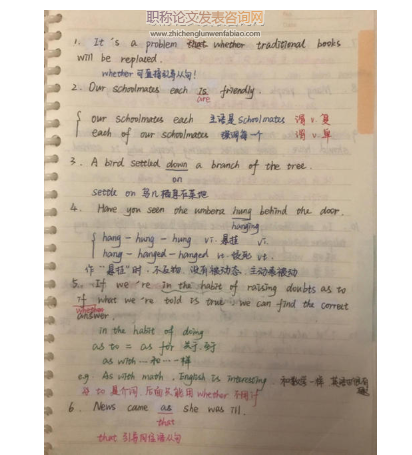 职称论文发表咨询网
www.zhichenglunwenfabiao.com
1. It's a problem that whether traditional books
will be replaced.
whether 可直接引导从句!
2. Our schoolmates each is friendly.
are
our schoolmates each 主语是 schoolmates 谓 v. 复
each of our schoolmates 强调每一个 谓 v. 单
3. A bird settled down a branch of the tree.
on
settle on 鸟儿栖息在某地
4. Have you seen the umbera hung behind the door.
hanging
hang - hung - hung vi. 悬挂 vi.
hang - hanged - hanged vt. 绞死 vt.
作"悬挂"时,不及物,没有被动态,主动表被动
5. If we're in the habit of raising doubts as to
if what we're told is true, we can find the correct
whether
answer.
in the habit of doing
as to = as for 关于,至于
as with 和…一样
e.g. As with math, English is interesting. 和数学一样 英语也很有趣
as to 是介词,后面只能用 whether 不用 if
6. News came as she was ill.
that
that 引导同位语从句